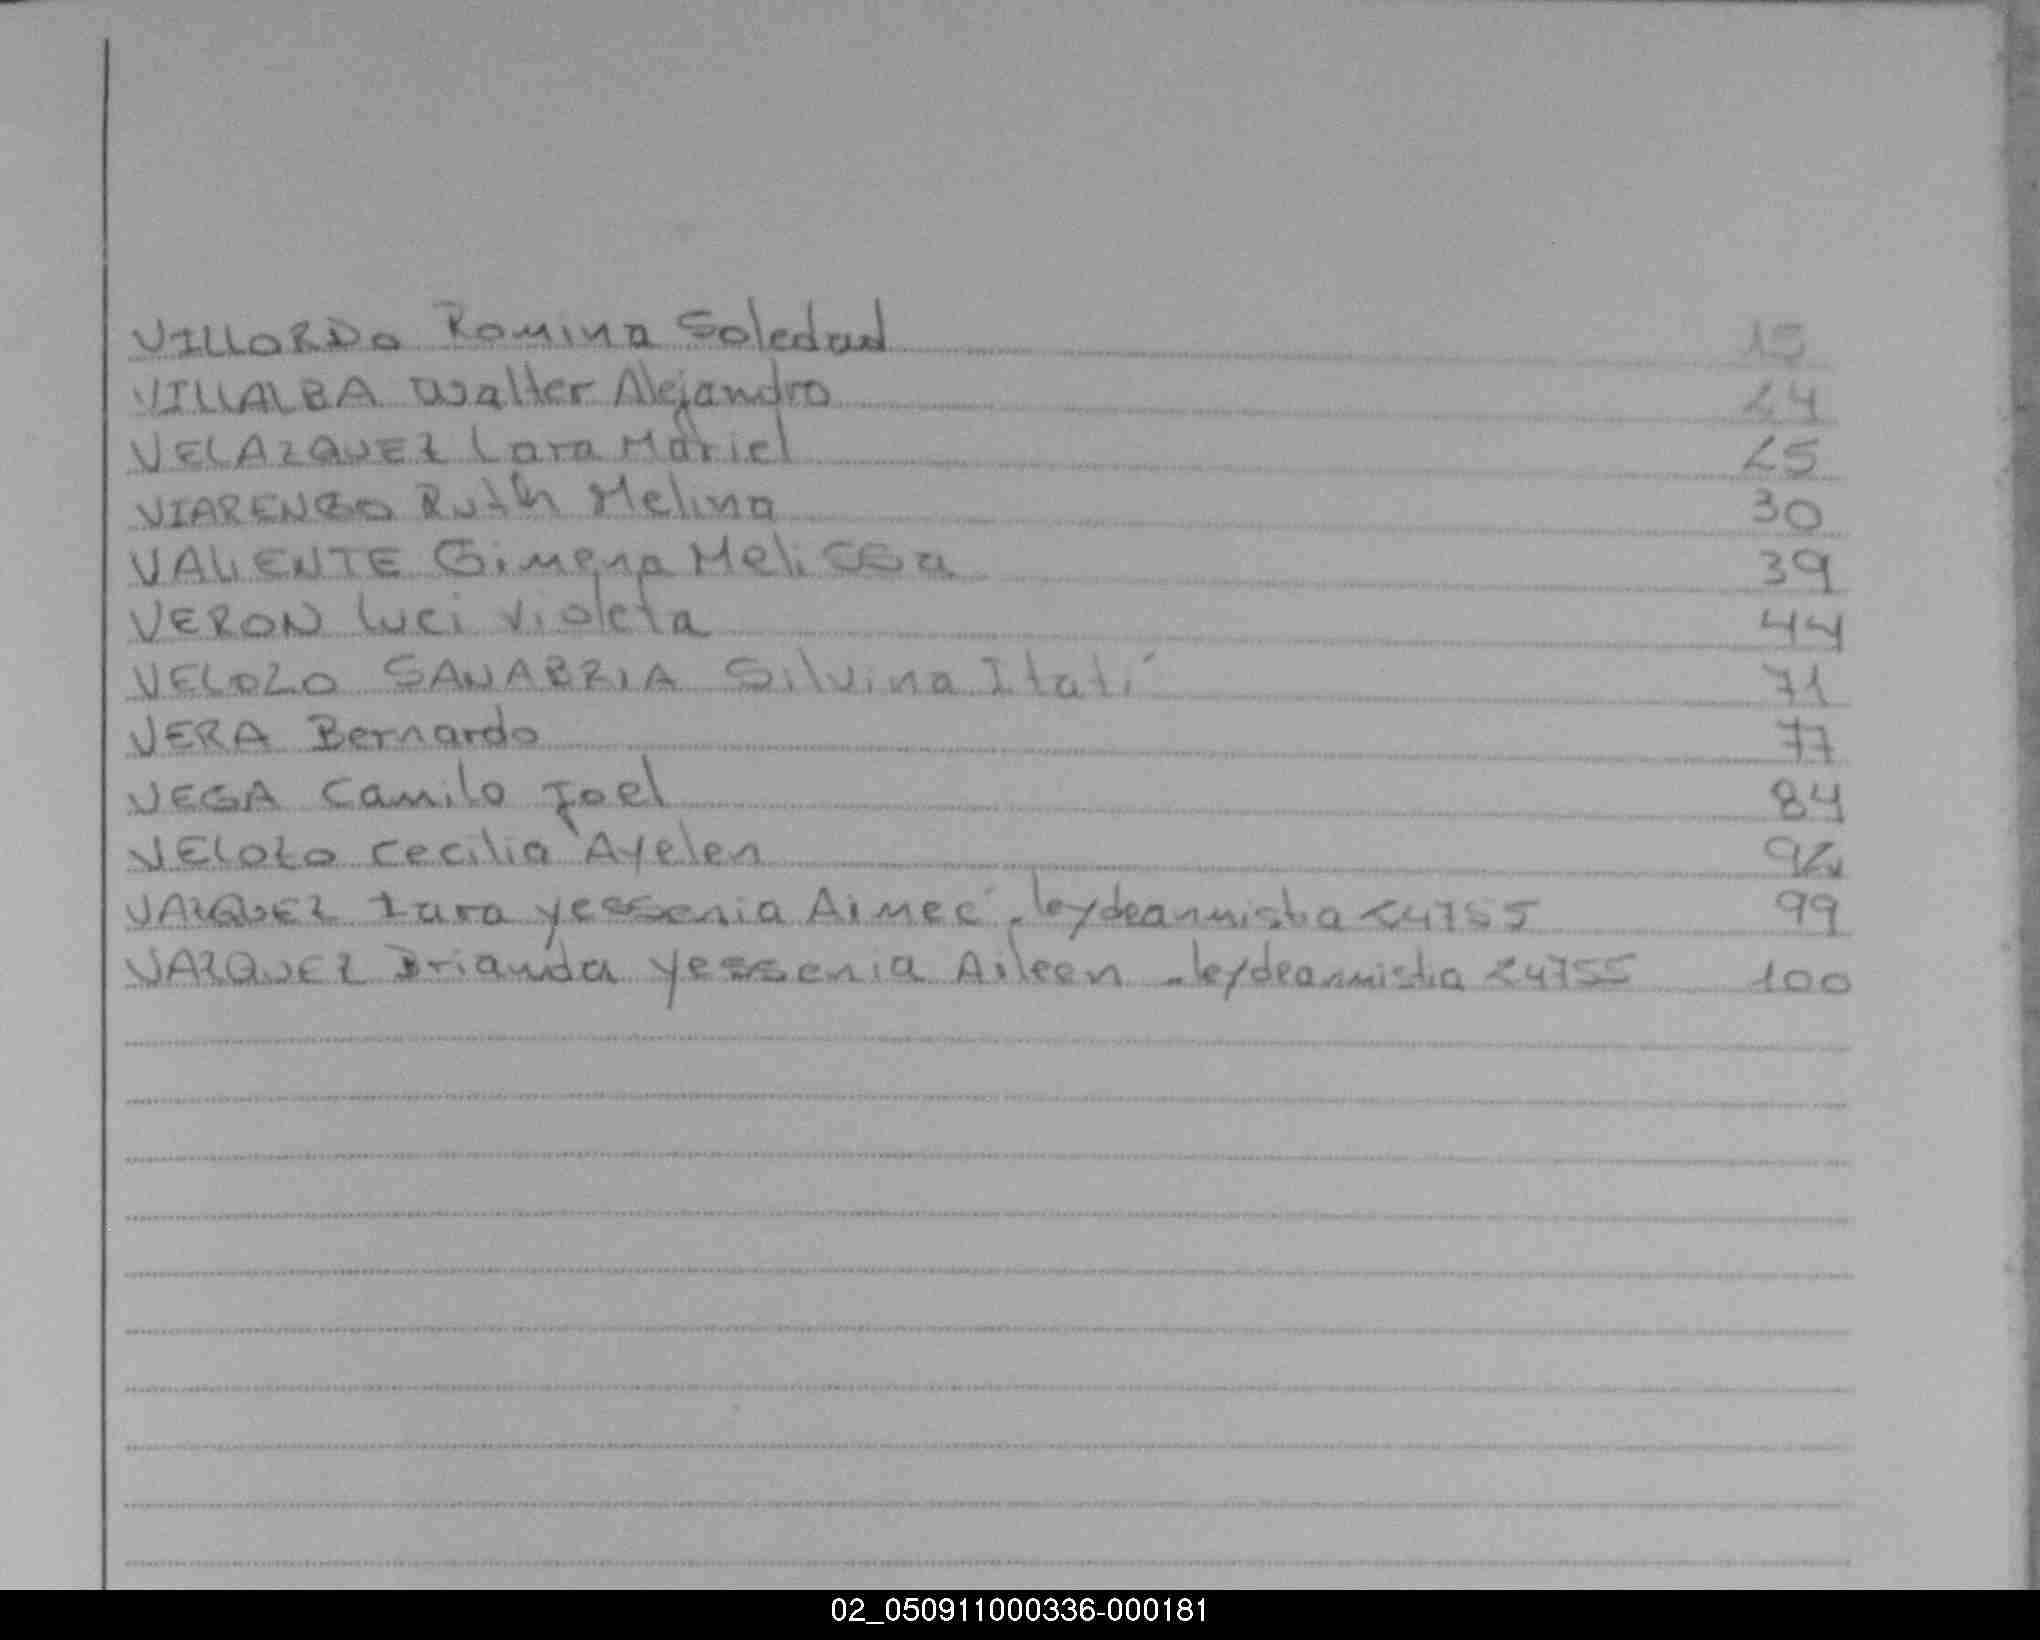 VILLORDO Romina Soledad 15
VILLALBA Walter Alejandro 24
VELAZQUEZ Lara Mariel 25
VIARENGO Ruth Melina 30
VALIENTE Gimena Melissa 39
VERON Luci Violeta 44
VELOZO SANABRIA Silvina Itatí 71
VERA Bernardo 77
VEGA Camilo Joel 84
VELOZO Cecilia Ayelen 92
VAZQUEZ Iara Yessenia Aimeé - ley de amnistia 24755 99
VAZQUEZ Brianda Yessenia Aileen - ley de amnistia 24755 100
02_050911000336-000181